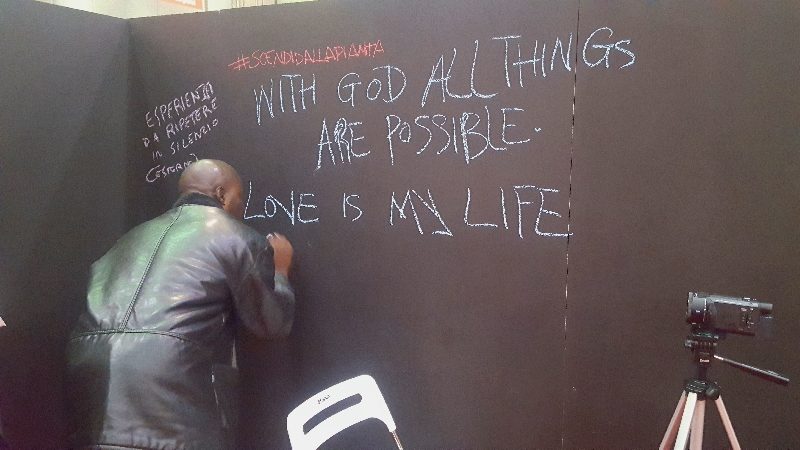 #SCENDIDALLAPIANTA
WITH GOD ALL THINGS
ARE POSSIBLE.
LOVE IS MY LIFE
ESPERIENZA
DA RIPETERE
IN SILENZIO
(ESTERNO)